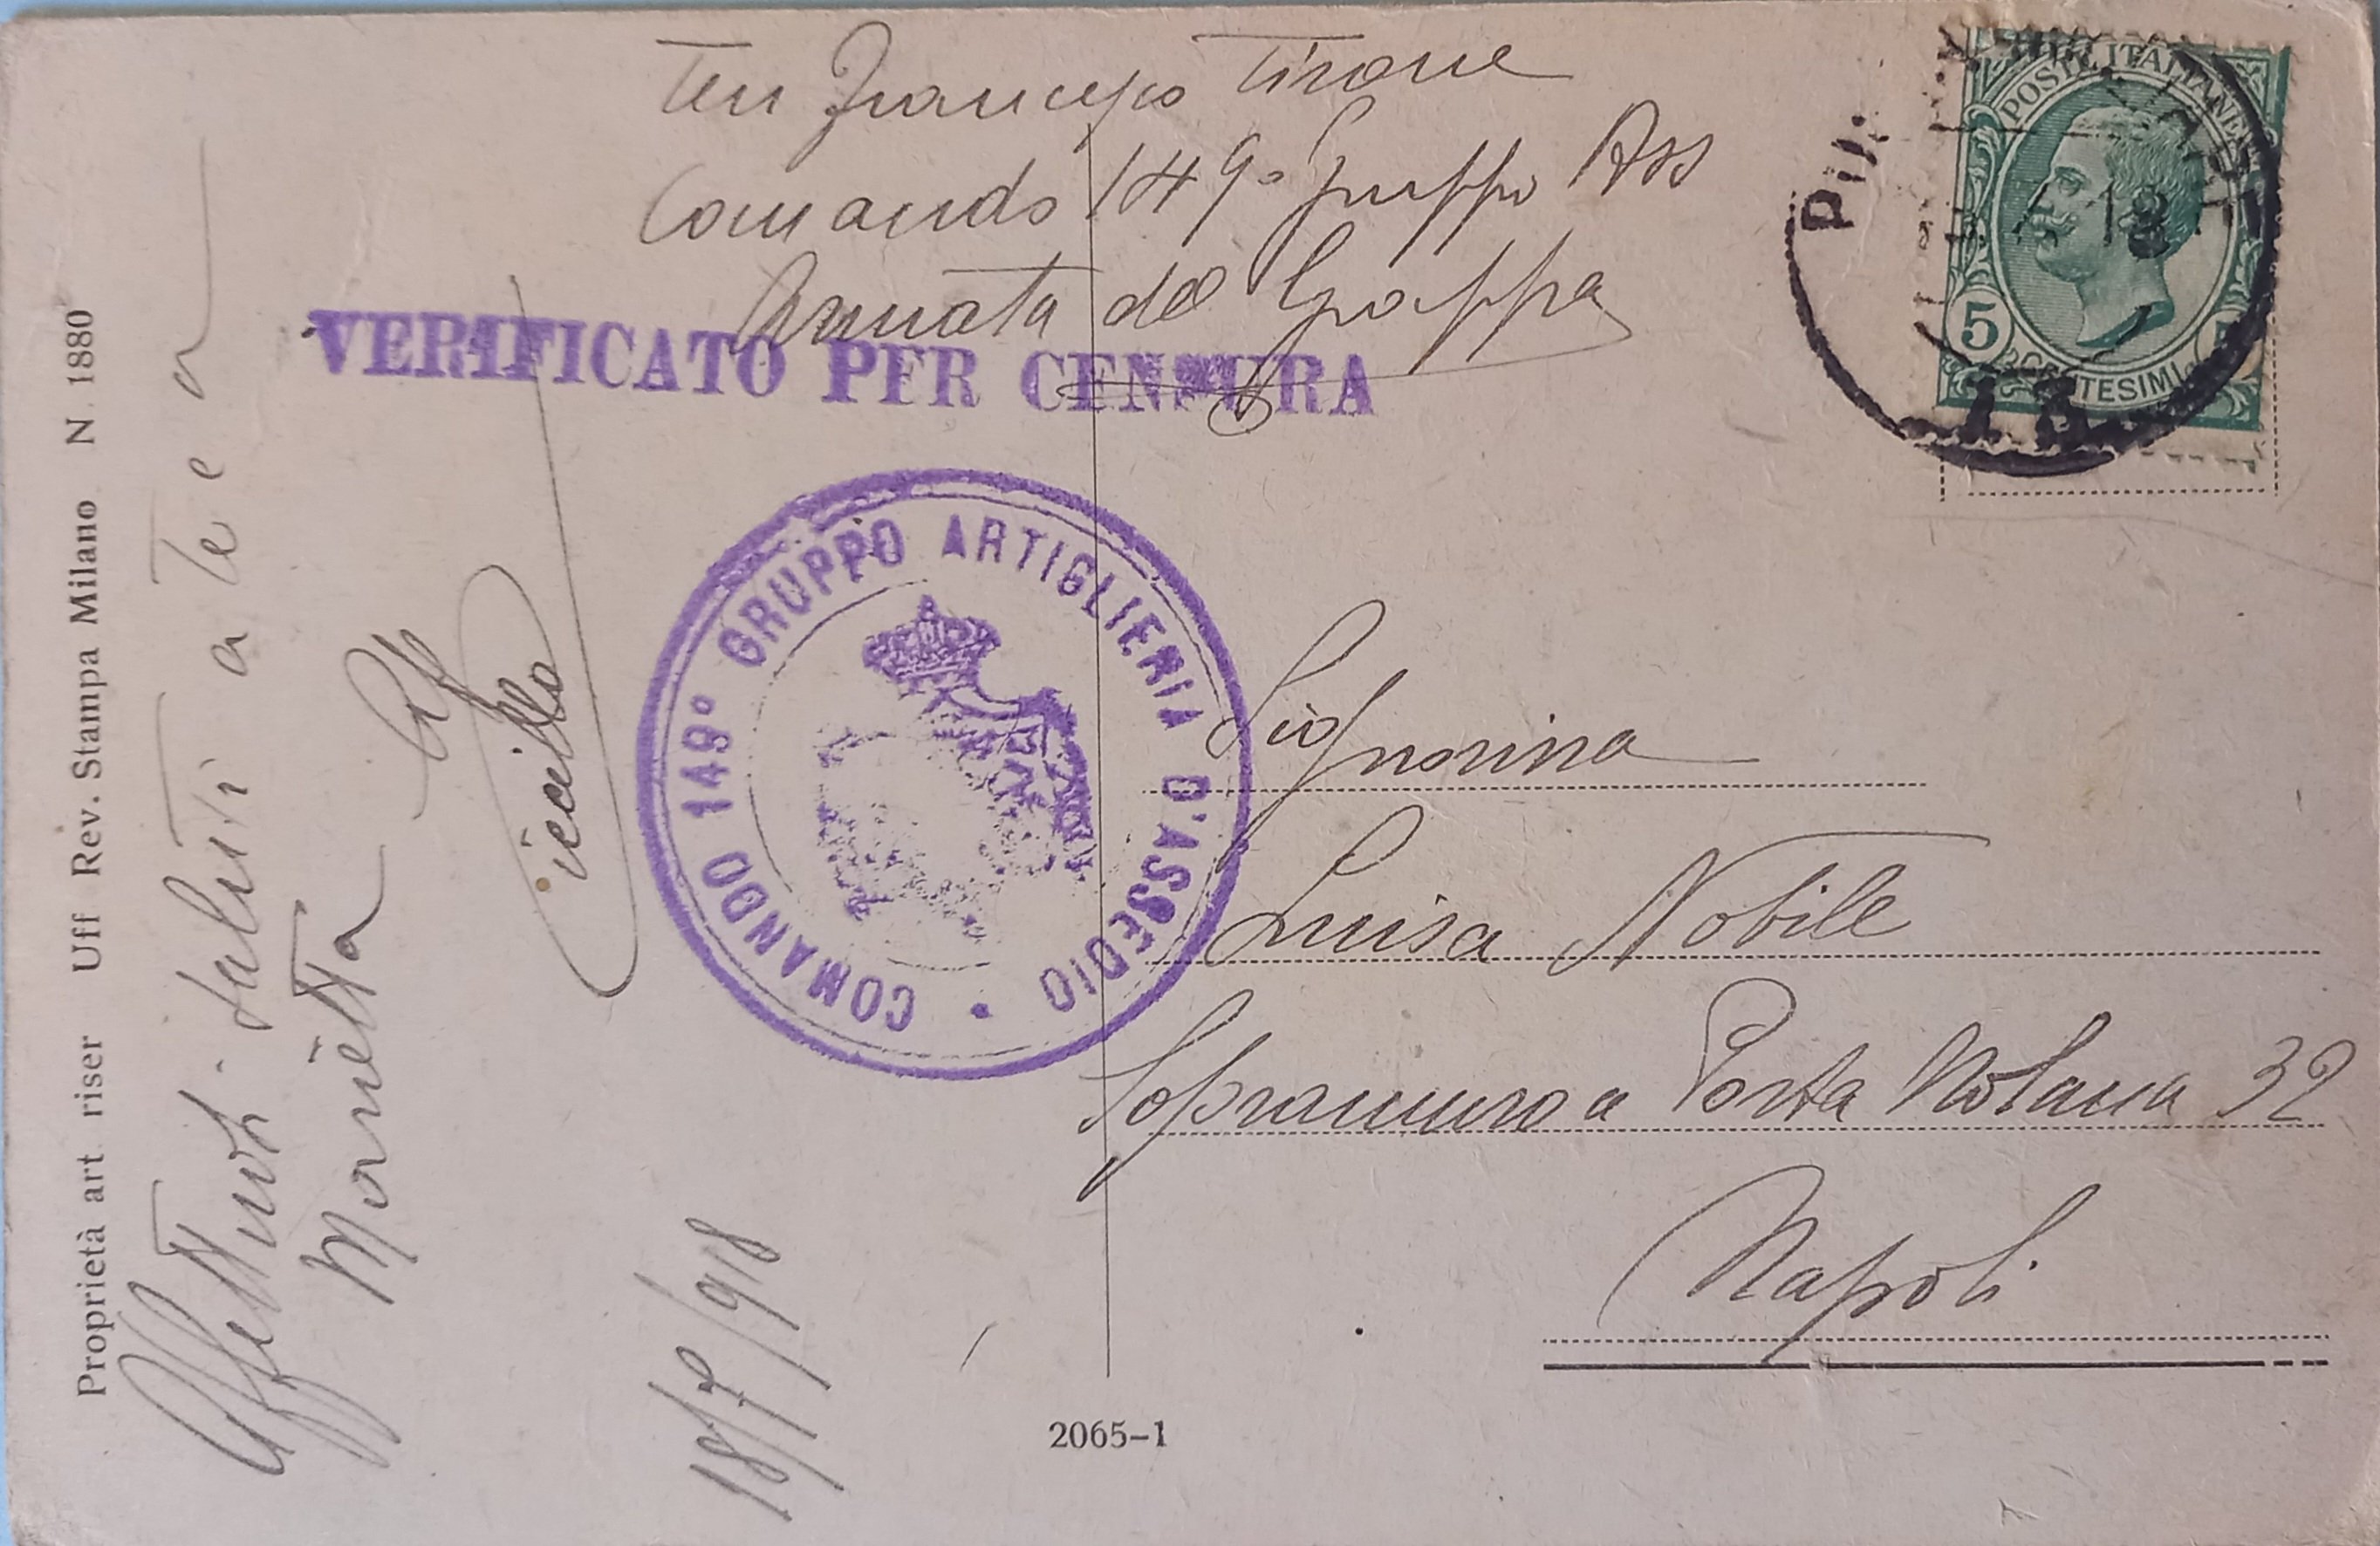 Ten Francesco Tirone
Comando 149º Gruppo Ass
Armata del Grappa
VERIFICATO PER CENSURA
POSTE ITALIANE
5 CENTESIMI 5
COMANDO 149º GRUPPO ARTIGLIERIA D'ASSEDIO
Proprietà art riser Uff Rev. Stampa Milano N. 1880
Affettuosi saluti a te e a
Marietta
18/7/918
Signorina
Luisa Nobile
Sopramuro a Porta Nolana 32
Napoli
2065-1